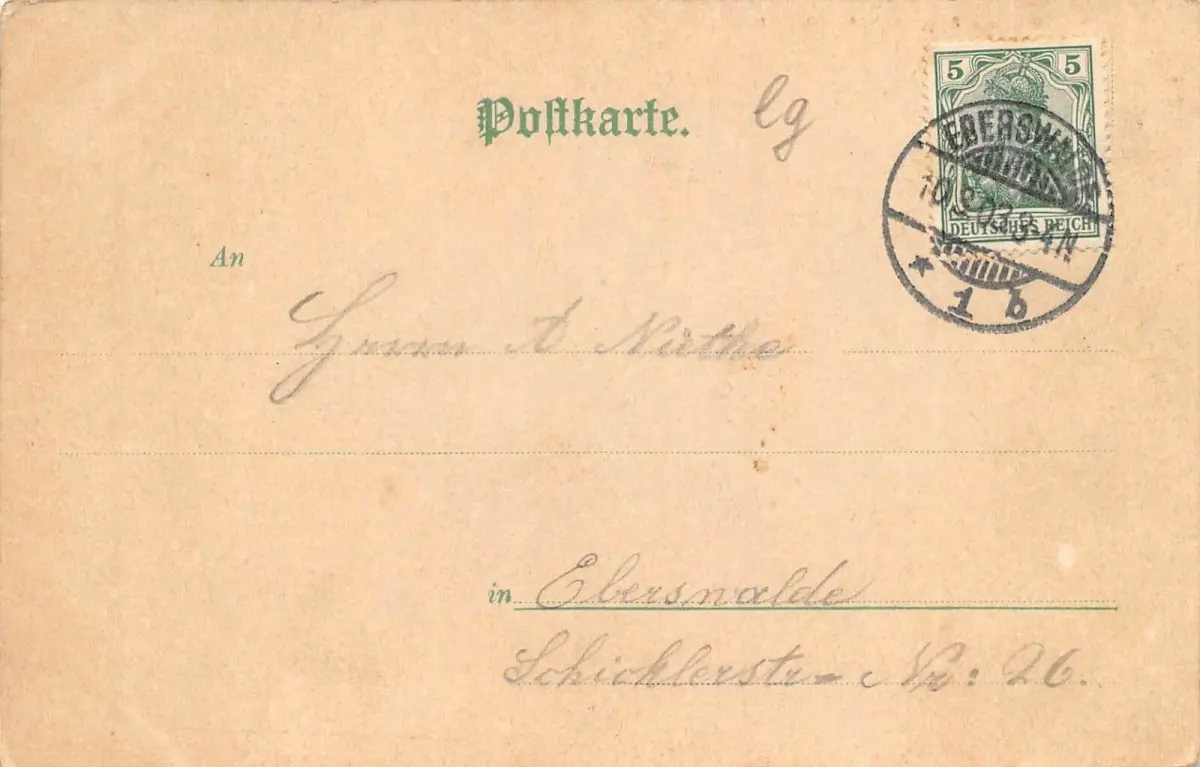 Postkarte.
lg
5 5
DEUTSCHES REICH
EBERSWALDE
8-4N
* 1 b
An
Herrn A Nüthe
in Eberswalde
Schicklerstr- Nr: 26.